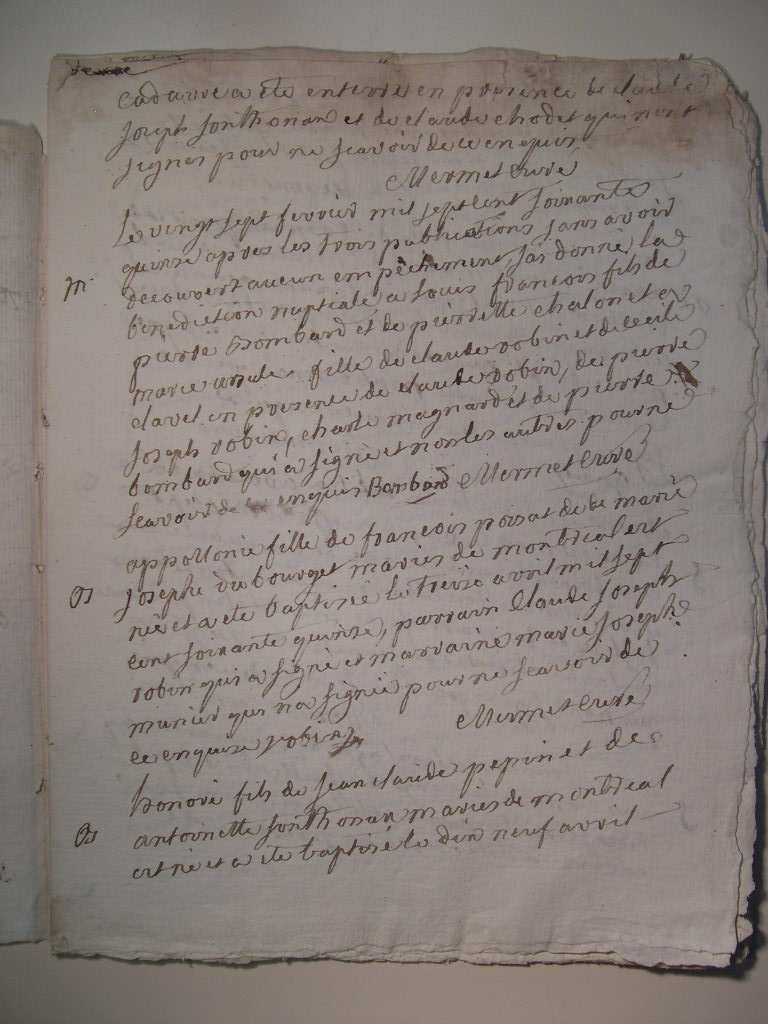 cadavre a ete enterré en presence de claude
joseph jonthonan et de claude chodet qui n'ont
signes pour ne scavoir de ce enquis
Mermet curé
Le vingt sept fevrier mil sept cent soixante
quinze apres les trois publications sans avoir
m decouvert aucun empêchement, j'ai donné la
benediction nuptiale a louis francois fils de
pierre Bombard et de pierrette chalon et a
marie ursule fille de claude robin et de cecile
clavel en presence de claude robin, de pierre
joseph robin, charle magnard et de pierre
bombard qui a signé et non les autres pour ne
scavoir de ce enquis Bombard Mermet curé
appollonie fille de francois poisat et de marie
B josephe du bourget mariés de montreal est
née et a ete baptisée le treize avril mil sept
cent soixante quinze, parrain Claude joseph
robin qui a signé et marraine marie josephe
munier qui n'a signée pour ne scavoir de
ce enquise robin Mermet curé
honoré fils de jean claude pepin et de
B antoinette jonthonan mariés de montreal
est né et a ete baptisé le dix neuf avril